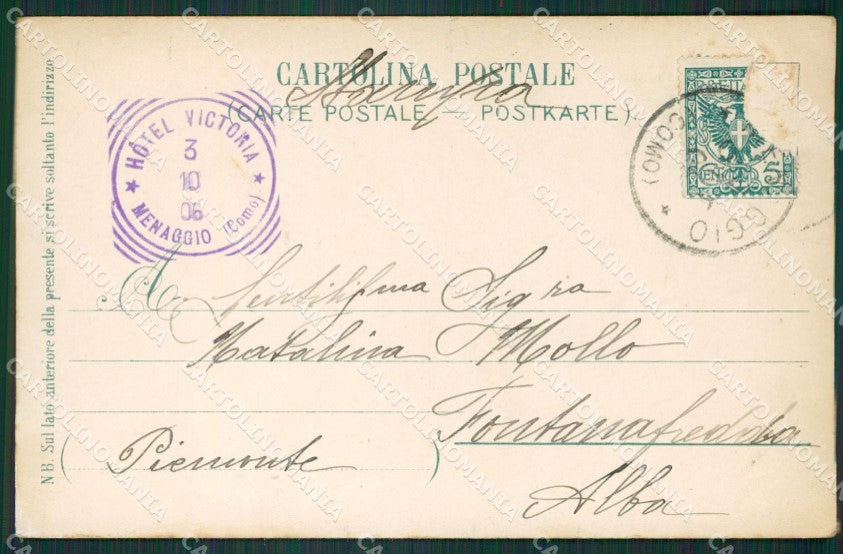 CARTOLINA POSTALE
(CARTE POSTALE — POSTKARTE)
HÔTEL VICTORIA
3
10
06
MENAGGIO (Como)
GGIO
(COMO)
5
A Gentilissma Sig ra
Natalina Mollo
Fontanafredda
(Piemonte)
Alba
NB. Sul lato anteriore della presente si scrive soltanto l'indirizzo.
CARTOLINOMANIA